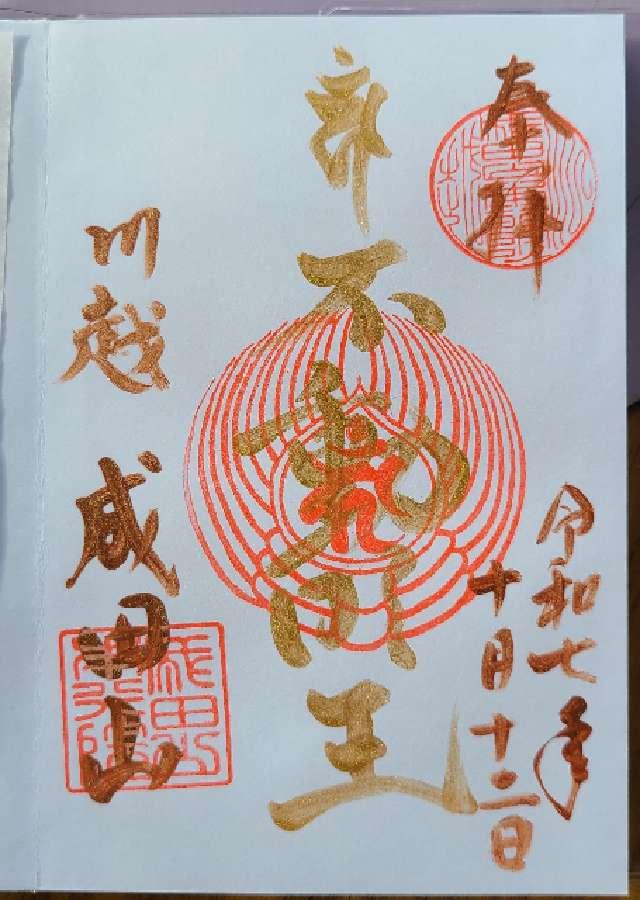 奉拝
令和七年
十月十二日
不動明王
川越 成田山